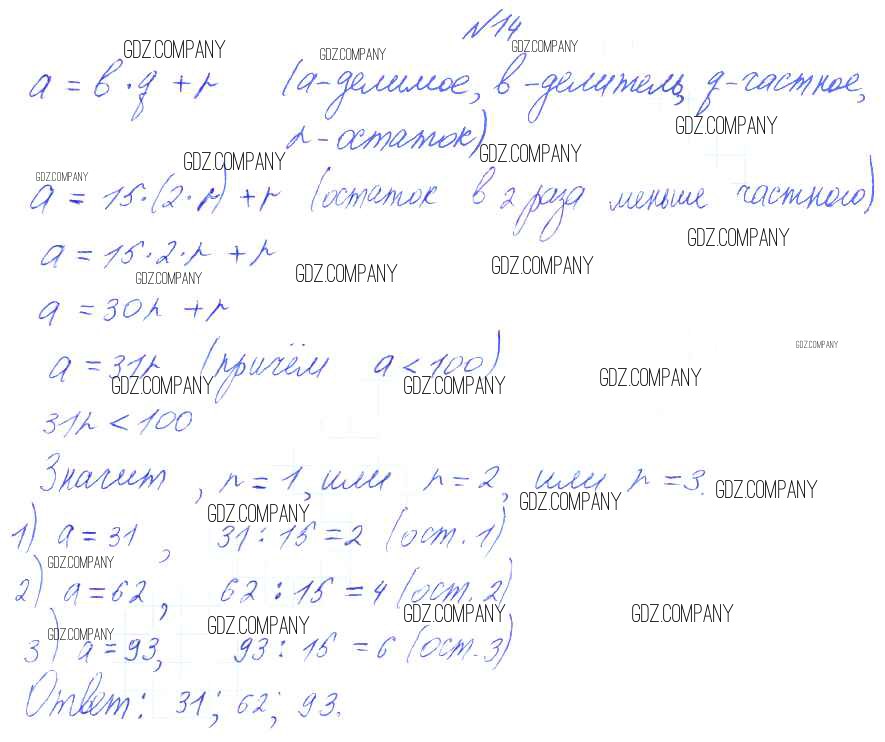 №14
a = b · q + r (а-делимое, b-делитель, q-частное,
r-остаток)
a = 15·(2·r) + r (остаток в 2 раза меньше частного)
a = 15·2·r + r
a = 30r + r
a = 31r (причём a < 100)
31r < 100
Значит, r = 1, или r = 2, или r = 3.
1) a = 31, 31 : 15 = 2 (ост. 1)
2) a = 62, 62 : 15 = 4 (ост. 2)
3) a = 93, 93 : 15 = 6 (ост. 3)
Ответ: 31; 62; 93.
GDZ.COMPANY GDZ.COMPANY GDZ.COMPANY
GDZ.COMPANY
GDZ.COMPANY GDZ.COMPANY
GDZ.COMPANY
GDZ.COMPANY
GDZ.COMPANY GDZ.COMPANY GDZ.COMPANY
GDZ.COMPANY
GDZ.COMPANY GDZ.COMPANY GDZ.COMPANY
GDZ.COMPANY GDZ.COMPANY GDZ.COMPANY
GDZ.COMPANY
GDZ.COMPANY GDZ.COMPANY
GDZ.COMPANY GDZ.COMPANY